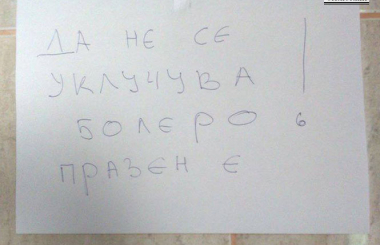 ДА НЕ СЕ
УКЛУЧУВА
БОЛЕРО
ПРАЗЕН Е